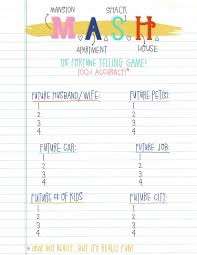 MANSION SHACK
MASH
APARTMENT HOUSE
THE FORTUNE TELLING GAME!
100% ACCURACY!*
FUTURE HUSBAND/WIFE: FUTURE PET(S):
1 1
2 2
3 3
4 4
FUTURE CAR: FUTURE JOB:
1 1
2 2
3 3
4 4
FUTURE # OF KIDS: FUTURE CITY:
1 1
2 2
3 3
4 4
* OKAY, NOT REALLY... BUT IT'S REALLY FUN!